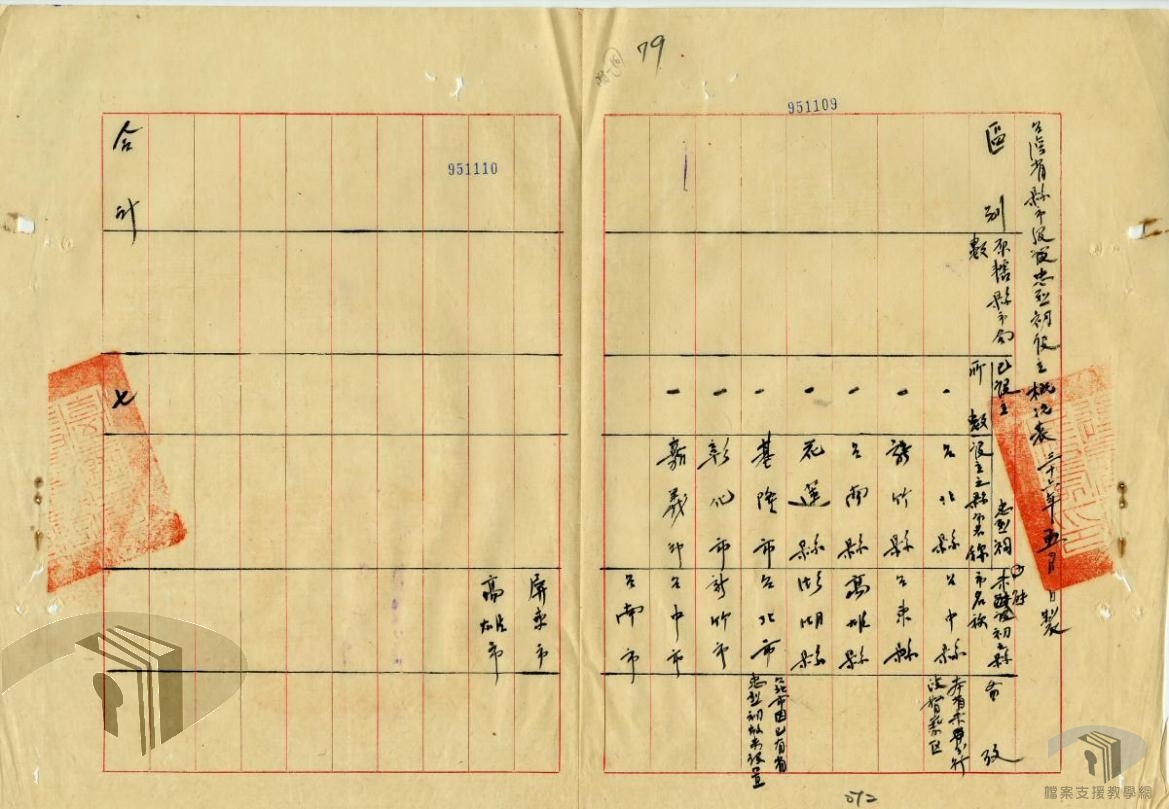 79
951109
951110
台湾省縣市級設忠烈祠設立概况表 三十六年五月 日製
區別
原轄縣市局數
已設立忠烈祠
所數
設立之縣市名稱
未設祠縣市名称
備攷
一
台北縣
台中縣
本省未舉行
一
新竹縣
台東縣
一
台南縣
高雄縣
一
花蓮縣
澎湖縣
一
基隆市
台北市
台北市因已有省
忠烈祠故未設置
一
彰化市
新竹市
一
嘉義市
台中市
台南市
屏東市
高雄市
合計
七
檔案支援教學網